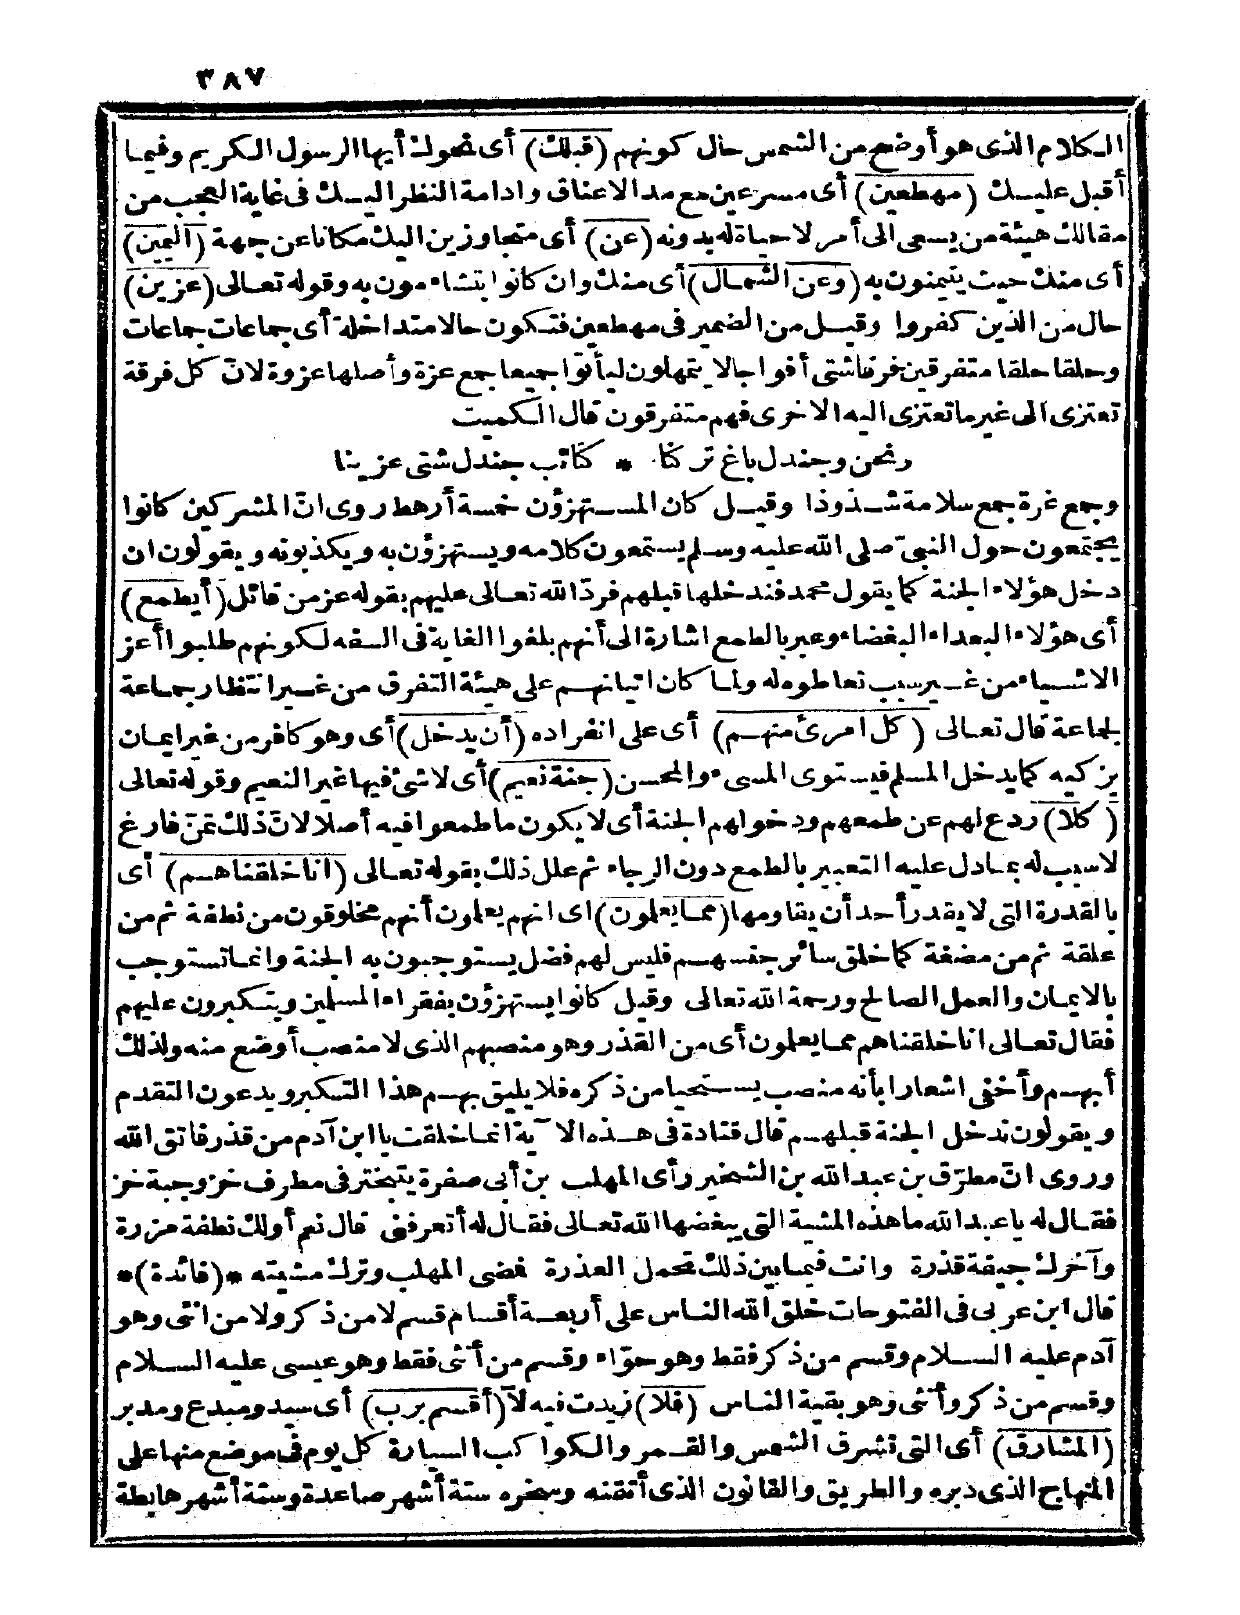 ٣٨٧
الكلام الذى هو أوضح من الشمس حال كونهم (قبلك) أى نحوك أيها الرسول الكريم وفيما
أقبل عليك (مهطعين) أى مسرعين مع مد الاعناق وادامة النظر اليك فى غاية العجب من
مقالك هيئة من يسعى الى أمر لا حياة له بدونه (عن) أى متجاوزين اليك مكانا عن جهة (اليمين)
أى منك حيث يتيمنون به (وعن الشمال) أى منك وان كانوا يتشاءمون به وقوله تعالى (عزين)
حال من الذين كفروا وقيل من الضمير فى مهطعين فتكون حالا متداخلة أى جماعات جماعات
وحلقا حلقا متفرقين فرقا شتى أفواجا لا يتمهلون ليأتوا جميعا جمع عزة وأصلها عزوة لانّ كل فرقة
تعتزى الى غير ما تعتزى اليه الاخرى فهم متفرقون قال الكميت
ونحن وجندل باغ تركنا * كتائب جندل شتى عزينا
وجمع غرة جمع سلامة شذوذا وقيل كان المستهزؤن خمسة أرهط روى انّ المشركين كانوا
يجتمعون حول النبىّ صلى الله عليه وسلم يستمعون كلامه ويستهزؤن به ويكذبونه ويقولون ان
دخل هؤلاء الجنة كما يقول محمد فندخلها قبلهم فردّ الله تعالى عليهم بقوله عز من قائل (أيطمع)
أى هؤلاء البعداء البغضاء وعبر بالطمع اشارة الى أنهم بلغوا الغاية فى السفه لكونهم طلبوا أعز
الاشياء من غير سبب تعاطوه له ولما كان اتيانهم على هيئة التفرق من غير انتظار جماعة
لجماعة قال تعالى (كل امرئ منهم) أى على انفراده (أن يدخل) أى وهو كافر من غير ايمان
يزكيه كما يدخل المسلم فيستوى المسىء والمحسن (جنة نعيم) أى لا شئ فيها غير النعيم وقوله تعالى
(كلا) ردع لهم عن طمعهم ودخولهم الجنة أى لا يكون ما طمعوا فيه أصلا لانّ ذلك تمنّ فارغ
لا سبب له بما دل عليه التعبير بالطمع دون الرجاء ثم علل ذلك بقوله تعالى (انا خلقناهم) أى
بالقدرة التى لا يقدر أحد أن يقاومها (مما يعلمون) اى انهم يعلمون أنهم مخلوقون من نطفة ثم من
علقة ثم من مضغة كما خلق سائر جنسهم فليس لهم فضل يستوجبون به الجنة وانما تستوجب
بالايمان والعمل الصالح ورحمة الله تعالى وقيل كانوا يستهزؤن بفقراء المسلمين ويتكبرون عليهم
فقال تعالى انا خلقناهم مما يعلمون أى من القذر وهو منصبهم الذى لا منصب أوضع منه ولذلك
أبهم وأخفى اشعارا بأنه منصب يستحيا من ذكره فلا يليق بهم هذا التكبر ويدعون التقدم
ويقولون ندخل الجنة قبلهم قال قتادة فى هذه الآية انما خلقت يا ابن آدم من قذر فاتق الله
وروى انّ مطرّف بن عبد الله بن الشخير رأى المهلب بن أبى صفرة يتبختر فى مطرف خز وجبة خز
فقال له يا عبد الله ما هذه المشية التى يبغضها الله تعالى فقال له أتعرفنى قال نعم أولك نطفة مزرة
وآخرك جيفة قذرة وانت فيما بين ذلك تحمل العذرة فمضى المهلب وترك مشيته *(فائدة)*
قال ابن عربى فى الفتوحات خلق الله الناس على أربعة أقسام قسم لا من ذكر ولا من انثى وهو
آدم عليه السلام وقسم من ذكر فقط وهو حوّاء وقسم من أنثى فقط وهو عيسى عليه السلام
وقسم من ذكر وأنثى وهو بقية الناس (فلا) زيدت فيه لا (أقسم برب) أى سيد ومبدع ومدبر
(المشارق) أى التى تشرق الشمس والقمر والكواكب السيارة كل يوم فى موضع منها على
المنهاج الذى دبره والطريق والقانون الذى أتقنه وسخره ستة أشهر صاعدة وستة أشهر هابطة